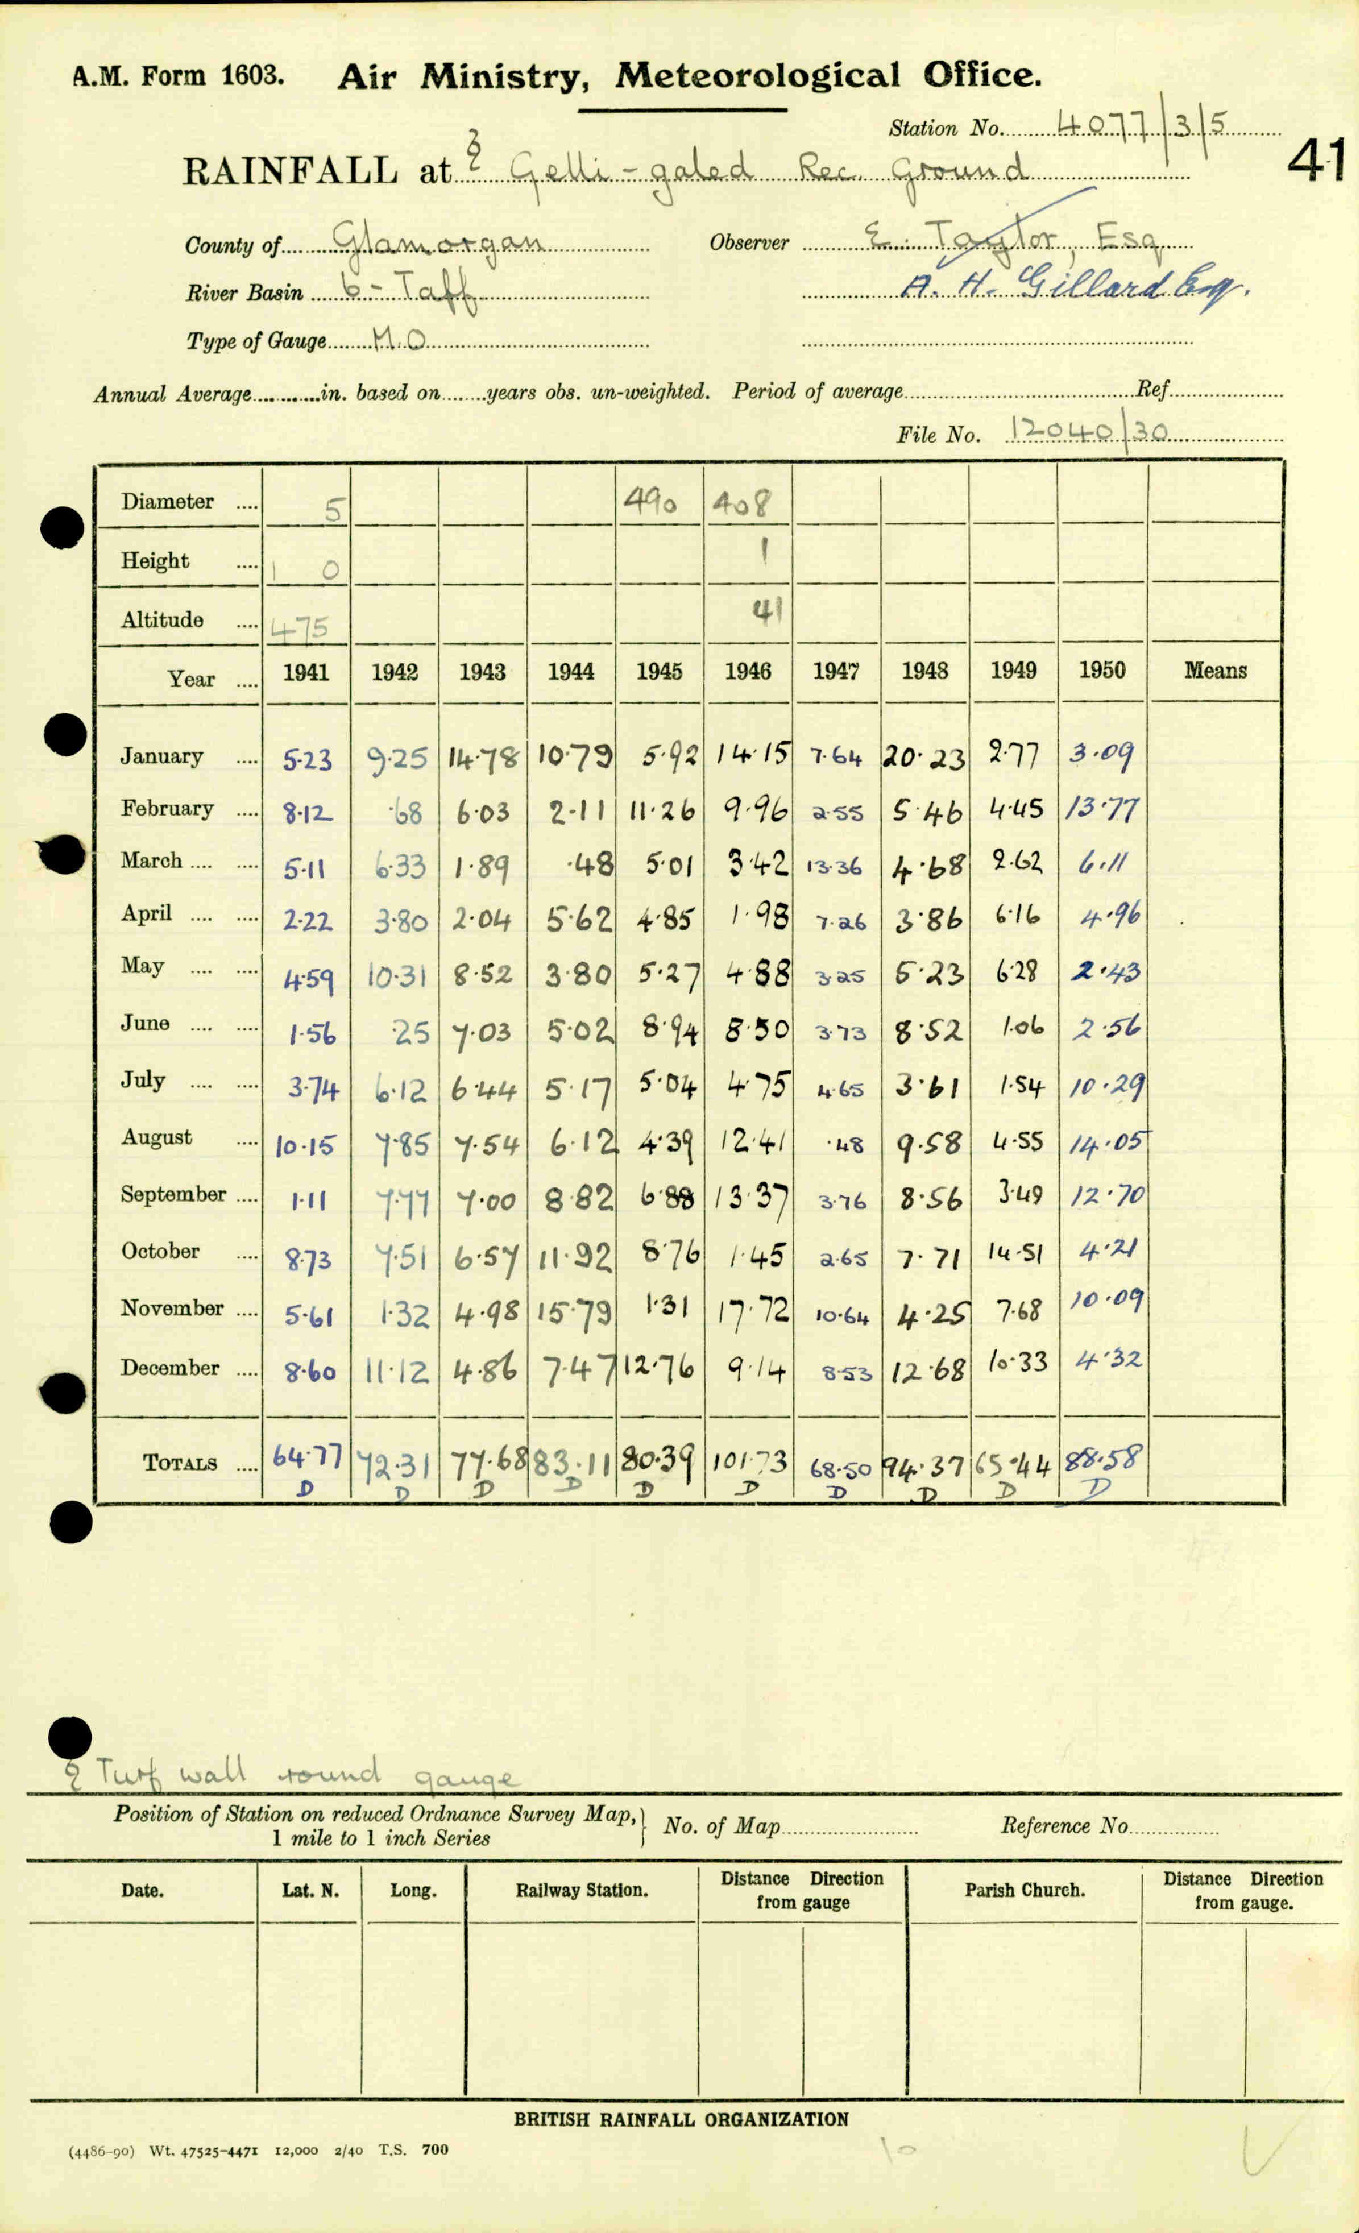 A.M. Form 1603. Air Ministry, Meteorological Office.
Station No. 4077/3/5
41
RAINFALL at Gelli-galed Rec. Ground
County of Glamorgan Observer E. Taylor, Esq
River Basin 6 - Taff A. H. Gillard Esq.
Type of Gauge M.O
Annual Average in. based on years obs. un-weighted. Period of average Ref
File No. 12040/30
Diameter 5 490 408
Height 1 0 1
Altitude 475 41
Year 1941 1942 1943 1944 1945 1946 1947 1948 1949 1950 Means
January 5.23 9.25 14.78 10.79 5.92 14.15 7.64 20.23 2.77 3.09
February 8.12 .68 6.03 2.11 11.26 9.96 2.55 5.46 4.45 13.77
March 5.11 6.33 1.89 .48 5.01 3.42 13.36 4.68 2.62 6.11
April 2.22 3.80 2.04 5.62 4.85 1.98 7.26 3.86 6.16 4.96
May 4.59 10.31 8.52 3.80 5.27 4.88 3.25 5.23 6.28 2.43
June 1.56 .25 7.03 5.02 8.94 8.50 3.73 8.52 1.06 2.56
July 3.74 6.12 6.44 5.17 5.04 4.75 4.65 3.61 1.54 10.29
August 10.15 7.85 7.54 6.12 4.39 12.41 .48 9.58 4.55 14.05
September 1.11 7.77 7.00 8.82 6.88 13.37 3.76 8.56 3.49 12.70
October 8.73 7.51 6.57 11.92 8.76 1.45 2.65 7.71 14.51 4.21
November 5.61 1.32 4.98 15.79 1.31 17.72 10.64 4.25 7.68 10.09
December 8.60 11.12 4.86 7.47 12.76 9.14 8.53 12.68 10.33 4.32
TOTALS 64.77 72.31 77.68 83.11 80.39 101.73 68.50 94.37 65.44 88.58
D D D D D D D D D D
Turf wall round gauge
Position of Station on reduced Ordnance Survey Map, 1 mile to 1 inch Series No. of Map Reference No
Date. Lat. N. Long. Railway Station. Distance Direction from gauge Parish Church. Distance Direction from gauge.
BRITISH RAINFALL ORGANIZATION
(4486-90) Wt. 47525-4471 12,000 2/40 T.S. 700
10